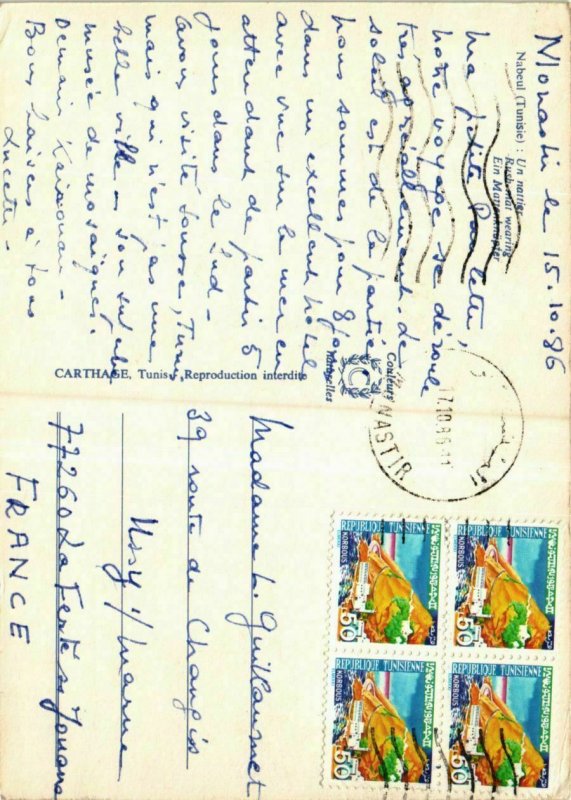 Monastir le 15.10.86
Nabeul (Tunisie) : Un nattier
Rush-mat wearing
Ein Mattenknüpfer
Ma petite Paulette,
notre voyage se déroule
très agréablement. Le
soleil est de la partie
nous sommes pour 8 jours
dans un excellent hôtel
avec vue sur la mer en
attendant de partir 5
jours dans le Sud -
avons visité Sousse, Tunis
mais qui n'est pas une
belle ville - son
musée de mosaïques.
Demain Kairouan -
Bons baisers à tous
Lucette -
CARTHAGE, Tunis. Reproduction interdite
Couleurs
Naturelles
17.10.86-11
NASTIR
Madame L. Guillaumet
39 route de Changis
Ussy s/Marne
77260 La Ferté s/s Jouarre
FRANCE
REPUBLIQUE TUNISIENNE
KORBOUS
50
REPUBLIQUE TUNISIENNE
KORBOUS
50
REPUBLIQUE TUNISIENNE
KORBOUS
50
REPUBLIQUE TUNISIENNE
KORBOUS
50